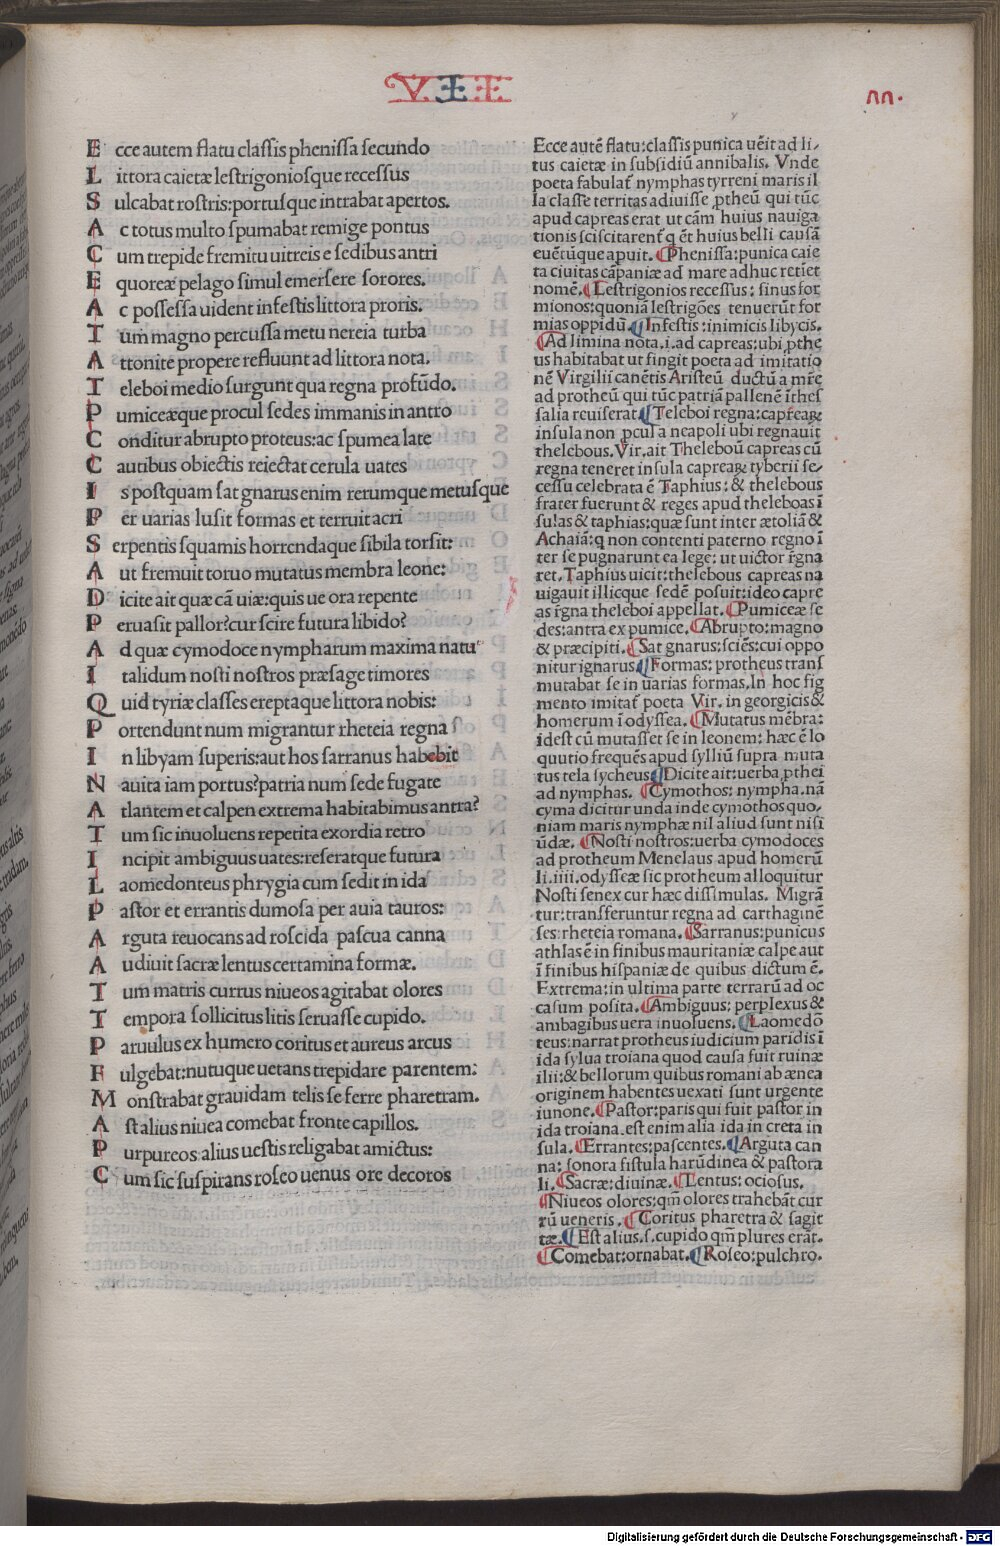 VII
E cce autem flatu classis phenissa secundo
L ittora caietæ lestrigoniosque recessus
S ulcabat rostris: portusque intrabat apertos.
A c totus multo spumabat remige pontus
C um trepide fremitu uitreis e sedibus antri
E quoreæ pelago simul emersere sorores.
A c possessa uident infestis littora proris.
T ūm magno percussa metu nereia turba
A ttonite propere refluunt ad littora nota.
T eleboi medio surgunt qua regna profūdo.
P umiceæque procul sedes immanis in antro
C onditur abrupto proteus: ac spumea late
C autibus obiectis reiectat cerula uates
I s postquam sat gnarus enim rerumque metusque
P er uarias lusit formas et terruit acri
S erpentis squamis horrendaque sibila torsit:
A ut fremuit toruo mutatus membra leone:
D icite ait quæ cā uiæ: quis ue ora repente
P eruasit pallor? cur scire futura libido?
A d quæ cymodoce nympharum maxima natu
I talidum nosti nostros præsage timores
Q uid tyriæ classes ereptaque littora nobis:
P ortendunt num migrantur rheteia regna
I n libyam superis: aut hos sarranus habebit
N auita iam portus? patria num sede fugate
A tlantem et calpen extrema habitabimus antra?
T um sic inuoluens repetita exordia retro
I ncipit ambiguus uates: reseratque futura
L aomedonteus phrygia cum sedit in ida
P astor et errantis dumosa per auia tauros:
A rguta reuocans ad roscida pascua canna
A udiuit sacræ lentus certamina formæ.
T um matris currus niueos agitabat olores
T empora sollicitus litis seruasse cupido.
P aruulus ex humero coritus et aureus arcus
F ulgebat: nutuque uetans trepidare parentem:
M onstrabat grauidam telis se ferre pharetram.
A st alius niuea comebat fronte capillos.
P urpureos alius uestis religabat amictus:
C um sic suspirans roseo uenus ore decoros
Ecce autē flatu: classis punica uēit ad li-
tus caietæ in subsidiū annibalis. Vnde
poeta fabulat̄ nymphas tyrreni maris il
la classe territas adiuisse ꝓtheū qui tūc
apud capreas erat ut cām huius nauiga
tionis sciscitarent̄ q ēt huius belli causā
euētūque apuit. Phenissa: punica caie
ta ciuitas cāpaniæ ad mare adhuc retiet
nomē. Lestrigonios recessus: sinus for
mionos: quonia lestrigōes tenuerūt for
mias oppidū. Infestis: inimicis libycis.
Ad limina nota. i. ad capreas: ubi ꝓthe
us habitabat ut fingit poeta ad imitatio
nē Virgilii canētis Aristeū ductū a mr̄e
ad protheū qui tūc patriā pallenē ī thes
salia reuiserat. Teleboi regna: capreaꝝ
insula non ꝓcul a neapoli ubi regnauit
thelebous. Vir. ait Theleboū capreas cū
regna teneret insula capreaꝝ tyberii se-
cessu celebrata ē Taphius: & thelebous
frater fuerunt & reges apud theleboas ī
sulas & taphias: quæ sunt inter ætoliā &
Achaiā: q non contenti paterno regno ī
ter se pugnarunt ea lege: ut uictor r̄gna
ret. Taphius uicit: thelebous capreas na
uigauit illicque sedē posuit: ideo capre
as r̄gna theleboi appellat. Pumiceæ se
des: antra ex pumice. Abrupto: magno
& præcipiti. Sat gnarus: sciēs: cui oppo
nitur ignarus. Formas: protheus transf
mutabat se in uarias formas. In hoc fig
mento imitat̄ poeta Vir. in georgicis &
homerum ī odyssea. Mutatus mēbra:
idest cū mutasset se in leonem: hæc ē lo
quutio frequēs apud sylliū supra muta
tus tela sycheus. Dicite ait: uerba ꝓthei
ad nymphas. Cymothos: nympha. nā
cyma dicitur unda inde cymothos quo-
niam maris nymphæ nil aliud sunt nisi
ūdæ. Nosti nostros: uerba cymodoces
ad protheum Menelaus apud homerū
li. iiii. odysseæ sic protheum alloquitur
Nosti senex cur hæc dissimulas. Migrā
tur: transferuntur regna ad carthaginē
ses: rheteia romana. Sarranus: punicus
athlas ē in finibus mauritaniæ calpe aut
ī finibus hispaniæ de quibus dictum ē.
Extrema: in ultima parte terrarū ad oc
casum posita. Ambiguus: perplexus &
ambagibus uera inuoluens. Laomedō
teus: narrat protheus iudicium paridis ī
ida sylua troiana quod causa fuit ruinæ
ilii: & bellorum quibus romani ab ænea
originem habentes uexati sunt urgente
iunone. Pastor: paris qui fuit pastor in
ida troiana. est enim alia ida in creta in
sula. Errantes: pascentes. Arguta can
na: sonora fistula harūdinea & pastora
li. Sacræ: diuinæ. Lentus: ociosus.
Niueos olores: qm̄ olores trahebāt cur
rū ueneris. Coritus pharetra & sagit
tæ. Est alius. s. cupido qm̄ plures erāt.
Comebat: ornabat. Roseo: pulchro.
Digitalisierung gefördert durch die Deutsche Forschungsgemeinschaft - DFG